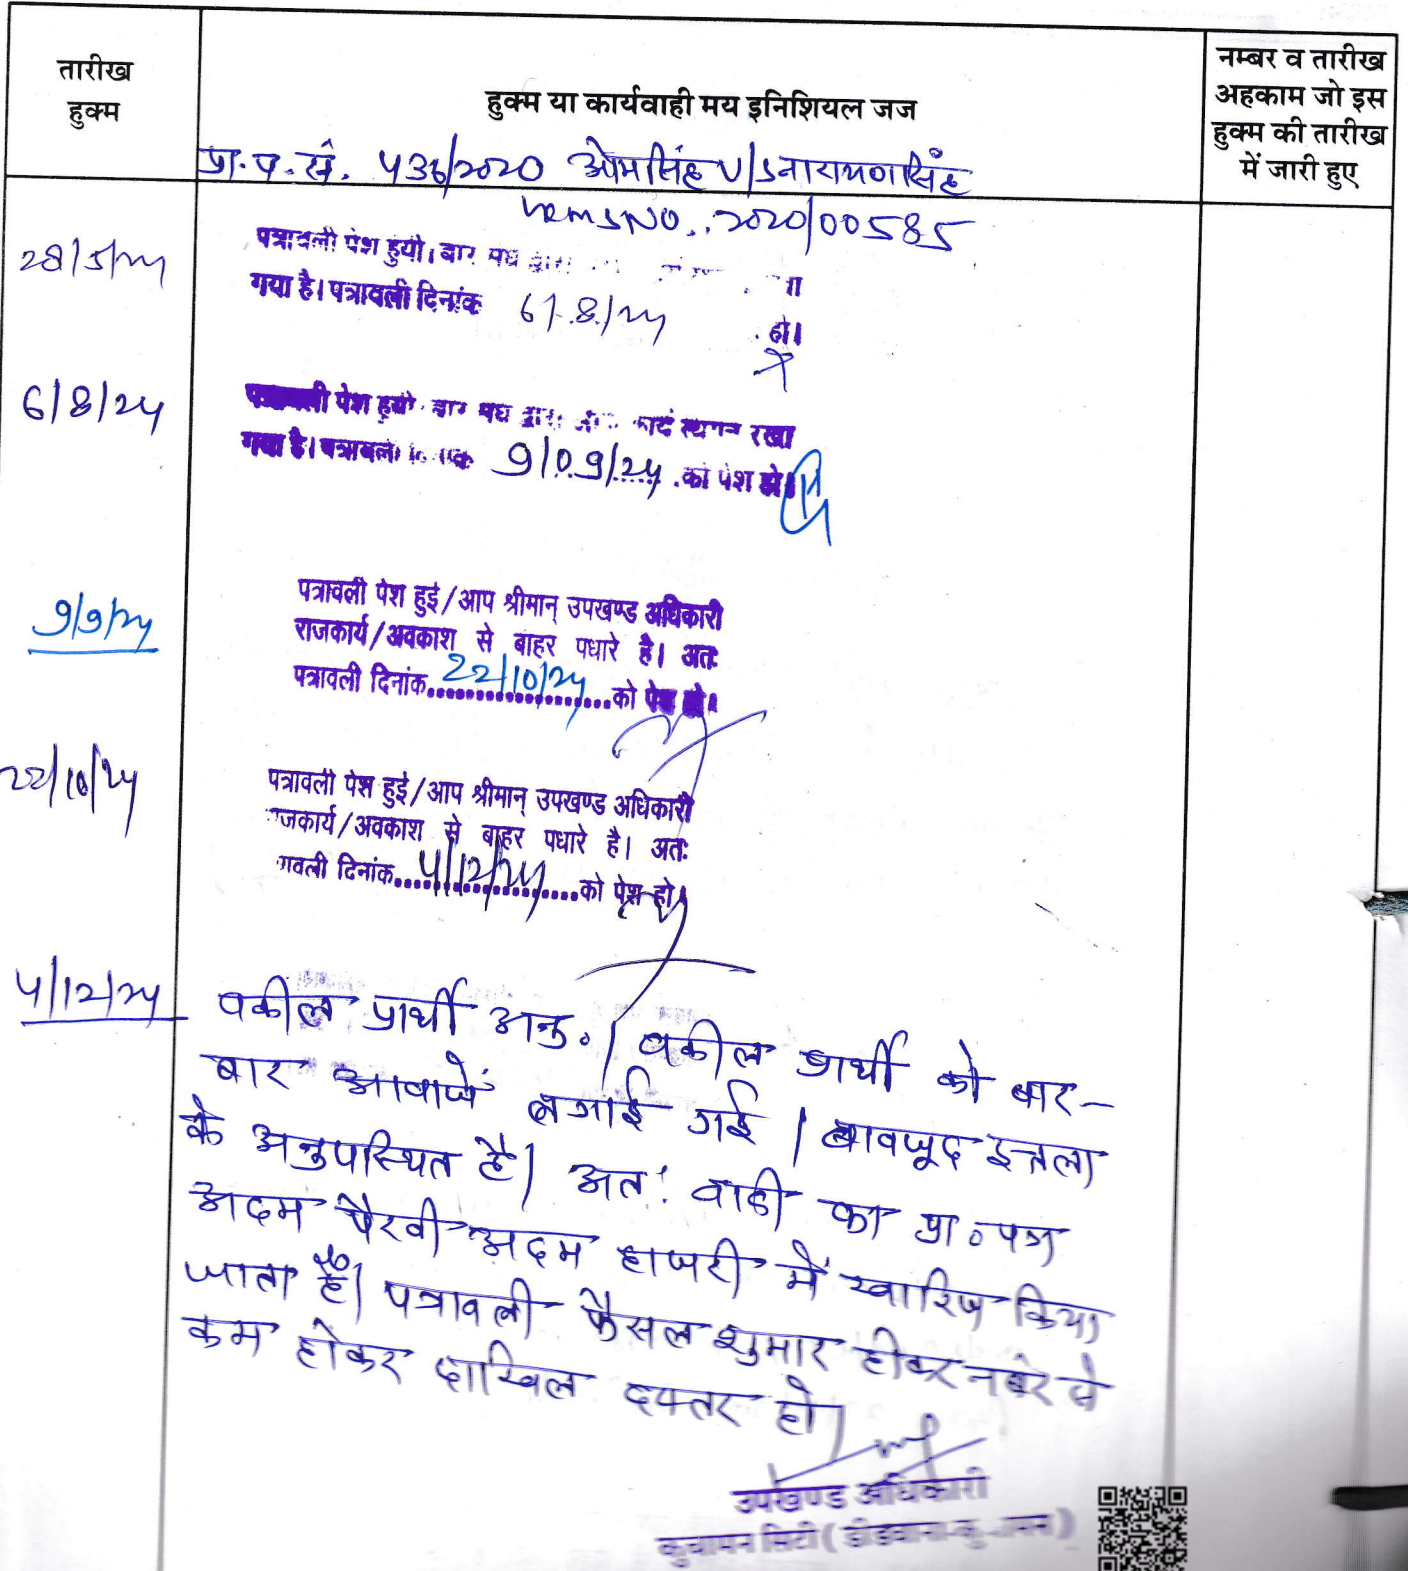 तारीख
हुक्म
हुक्म या कार्यवाही मय इनिशियल जज
नम्बर व तारीख
अहकाम जो इस
हुक्म की तारीख
में जारी हुए
प्रा.प.सं. 436/2020 ओमसिंह V/S नारायणसिंह
2020/00585
28/5/24
पत्रावली पेश हुयी। बार संघ द्वारा
गया है। पत्रावली दिनांक 6/8/24 हो।
6/8/24
पत्रावली पेश हुयी बार संघ द्वारा कार्य स्थगन रखा
गया है। पत्रावली 9/09/24 को पेश हो।
9/9/24
पत्रावली पेश हुई/आप श्रीमान् उपखण्ड अधिकारी
राजकार्य/अवकाश से बाहर पधारे है। अतः
पत्रावली दिनांक 22/10/24 को पेश हो।
22/10/24
पत्रावली पेश हुई/आप श्रीमान् उपखण्ड अधिकारी
राजकार्य/अवकाश से बाहर पधारे है। अतः
पत्रावली दिनांक 4/12/24 को पेश हो।
4/12/24
वकील प्रार्थी अनु०। वकील प्रार्थी को बार-
बार आवाजें लगाई गई। बावजूद इत्तला
के अनुपस्थित है। अतः वादी का प्रा०पत्र
अदम पैरवी अदम हाजरी में खारिज किया
जाता है। पत्रावली फैसल शुमार होकर नम्बर से
कम होकर दाखिल दफ्तर हो।
उपखण्ड अधिकारी
कुचामन सिटी (डीडवाना-कुचामन)